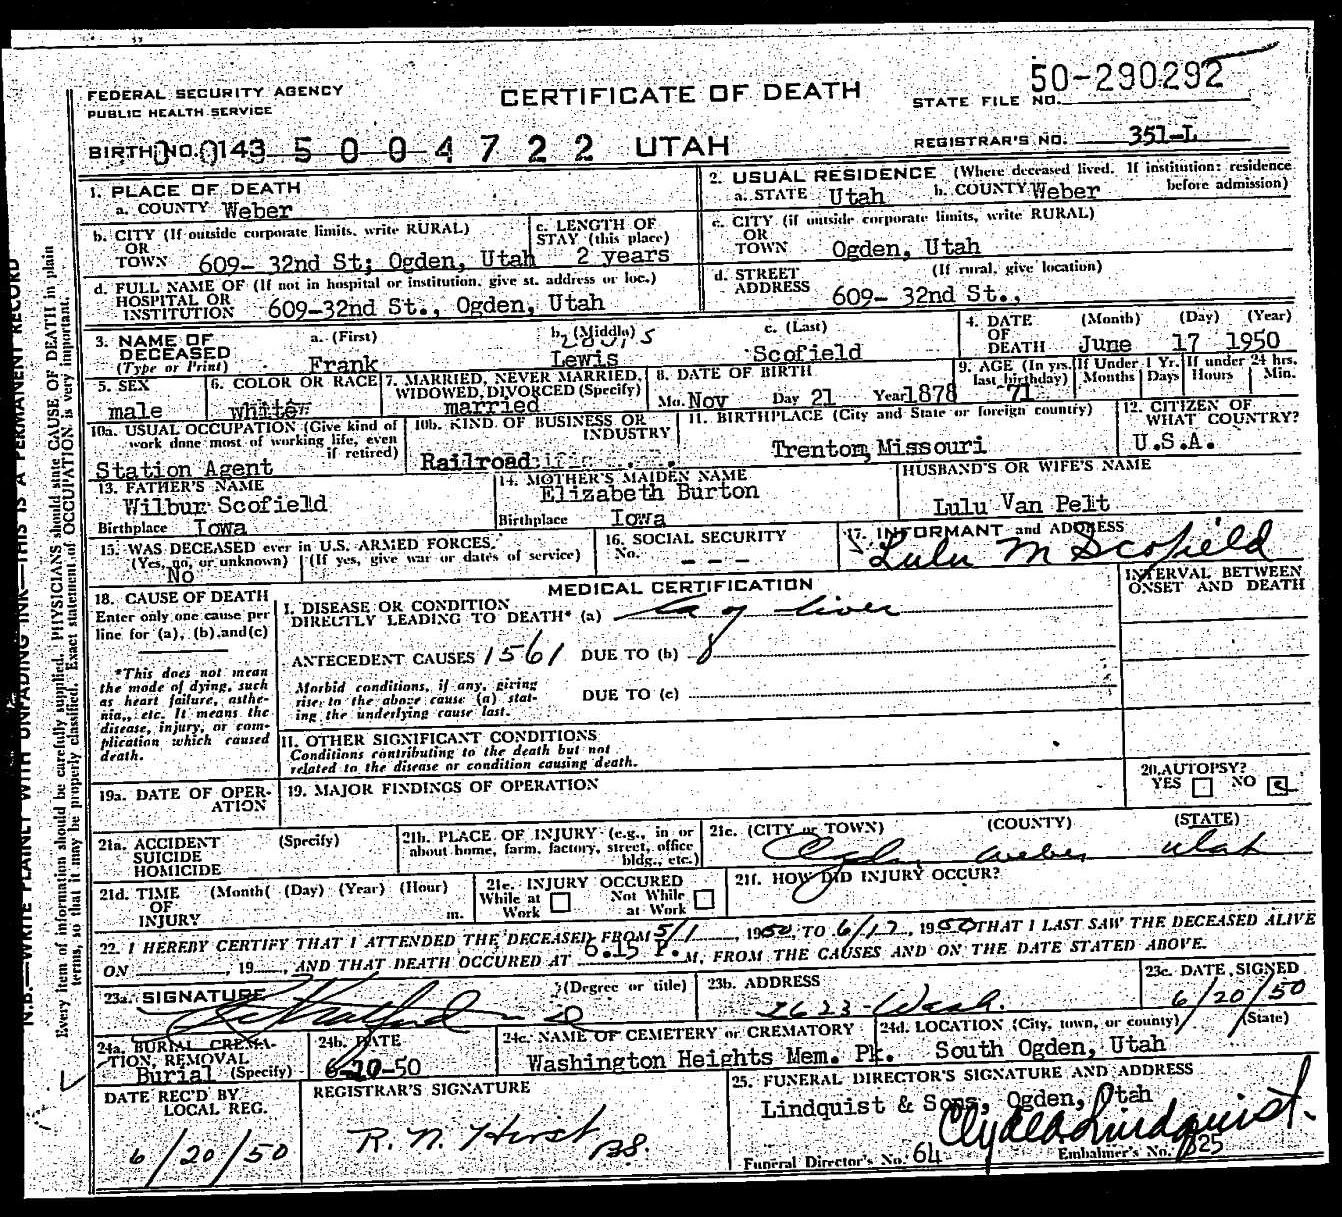 50-290292
FEDERAL SECURITY AGENCY
PUBLIC HEALTH SERVICE
CERTIFICATE OF DEATH
STATE FILE NO.
BIRTH NO. 0143 5004722 UTAH
REGISTRAR'S NO. 351-L
N.B.—WRITE PLAINLY WITH UNFADING INK—THIS IS A PERMANENT RECORD
Every item of information should be carefully supplied. PHYSICIANS should state CAUSE OF DEATH in plain
terms, so that it may be properly classified. Exact statement of OCCUPATION is very important.
1. PLACE OF DEATH
a. COUNTY Weber
2. USUAL RESIDENCE (Where deceased lived. If institution: residence before admission)
a. STATE Utah b. COUNTY Weber
b. CITY (If outside corporate limits, write RURAL)
OR
TOWN 609- 32nd St; Ogden, Utah
c. LENGTH OF
STAY (this place)
2 years
c. CITY (if outside corporate limits, write RURAL)
OR
TOWN Ogden, Utah
d. FULL NAME OF (If not in hospital or institution, give st. address or loc.)
HOSPITAL OR
INSTITUTION 609-32nd St., Ogden, Utah
d. STREET (If rural, give location)
ADDRESS 609- 32nd St.,
3. NAME OF
DECEASED
(Type or Print)
a. (First) b. (Middle) c. (Last)
Frank Lewis Scofield
4. DATE
OF
DEATH
(Month) (Day) (Year)
June 17 1950
5. SEX
male
6. COLOR OR RACE
white
7. MARRIED, NEVER MARRIED,
WIDOWED, DIVORCED (Specify)
married
8. DATE OF BIRTH
Mo. Nov Day 21 Year 1878
9. AGE (In yrs. last birthday)
71
If Under 1 Yr.
Months Days
If under 24 hrs.
Hours Min.
10a. USUAL OCCUPATION (Give kind of
work done most of working life, even
if retired)
Station Agent
10b. KIND OF BUSINESS OR
INDUSTRY
Railroad
11. BIRTHPLACE (City and State or foreign country)
Trenton, Missouri
12. CITIZEN OF
WHAT COUNTRY?
U.S.A.
13. FATHER'S NAME
Wilbur Scofield
Birthplace Iowa
14. MOTHER'S MAIDEN NAME
Elizabeth Burton
Birthplace Iowa
HUSBAND'S OR WIFE'S NAME
Lulu Van Pelt
15. WAS DECEASED ever in U.S. ARMED FORCES
(Yes, no, or unknown) (If yes, give war or dates of service)
No
16. SOCIAL SECURITY
No. - - -
17. INFORMANT and ADDRESS
Lulu M Scofield
18. CAUSE OF DEATH
Enter only one cause per
line for (a), (b), and (c)
*This does not mean
the mode of dying, such
as heart failure, asthe-
nia, etc. It means the
disease, injury, or com-
plication which caused
death.
MEDICAL CERTIFICATION
INTERVAL BETWEEN
ONSET AND DEATH
I. DISEASE OR CONDITION
DIRECTLY LEADING TO DEATH* (a) Ca of liver
ANTECEDENT CAUSES 1561 DUE TO (b)
Morbid conditions, if any, giving
rise to the above cause (a) stat-
ing the underlying cause last.
DUE TO (c)
II. OTHER SIGNIFICANT CONDITIONS
Conditions contributing to the death but not
related to the disease or condition causing death.
19a. DATE OF OPER-
ATION
19. MAJOR FINDINGS OF OPERATION
20. AUTOPSY?
YES NO
21a. ACCIDENT (Specify)
SUICIDE
HOMICIDE
21b. PLACE OF INJURY (e.g., in or
about home, farm, factory, street, office
bldg., etc.)
21c. (CITY or TOWN) (COUNTY) (STATE)
Ogden Weber Utah
21d. TIME (Month) (Day) (Year) (Hour)
OF
INJURY m.
21e. INJURY OCCURED
While at Work
Not While at Work
21f. HOW DID INJURY OCCUR?
22. I HEREBY CERTIFY THAT I ATTENDED THE DECEASED FROM 5/1, 1950, TO 6/17, 1950 THAT I LAST SAW THE DECEASED ALIVE
ON , 19 , AND THAT DEATH OCCURED AT 6.15 P. M, FROM THE CAUSES AND ON THE DATE STATED ABOVE.
23a. SIGNATURE (Degree or title)
23b. ADDRESS
2623 Wash.
23c. DATE SIGNED
6/20/50
24a. BURIAL, CREMA-
TION, REMOVAL
Burial (Specify)
24b. DATE
6-20-50
24c. NAME OF CEMETERY or CREMATORY
Washington Heights Mem. Pk.
24d. LOCATION (City, town, or county) (State)
South Ogden, Utah
DATE REC'D BY
LOCAL REG.
6/20/50
REGISTRAR'S SIGNATURE
R. N. Hirst
25. FUNERAL DIRECTOR'S SIGNATURE AND ADDRESS
Lindquist & Sons, Ogden, Utah
Clyde Lindquist
Funeral Director's No. 64 Embalmer's No. 825